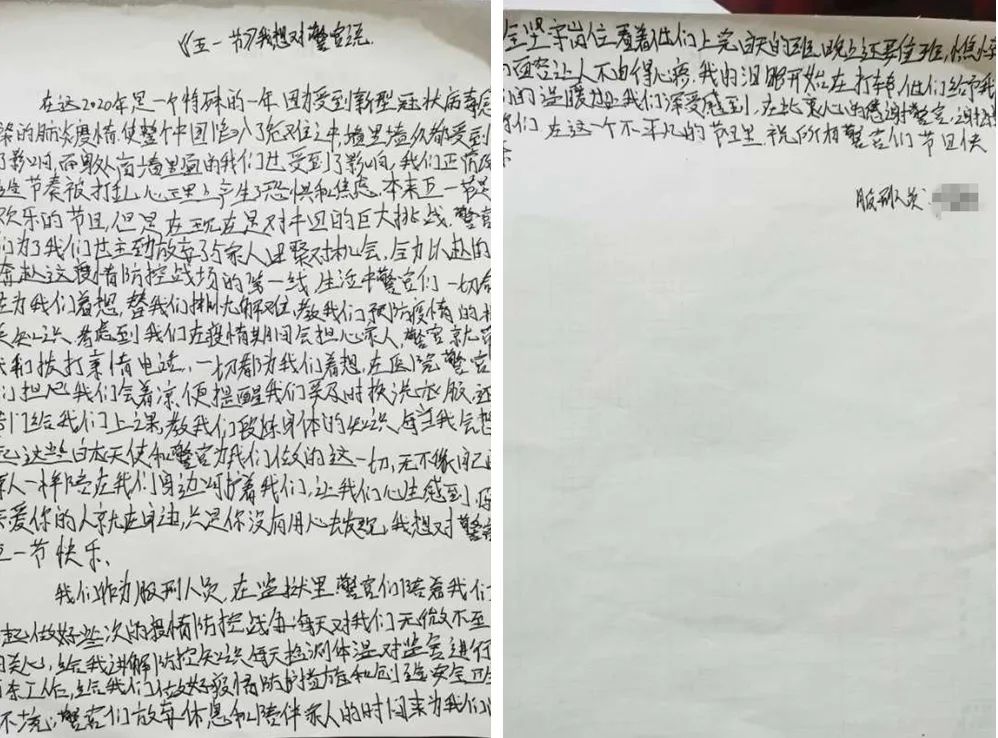 《五一节》我想对警官说
在这2020年是一个特殊的一年因为受到新型冠状病毒感
染的肺炎疫情使整个中国陷入了危难之中墙里墙外都受到
了影响,而身处高墙里面的我们也受到了影响,我们正常的
生节奏被打乱心里上产生了恐惧和焦虑.本来五一节是
欢乐的节日,但是在现在是对中国的巨大挑战.警官
们为了我们也主动放弃了与家人团聚对机会,全力以赴的
奔赴这疫情防控战场的第一线生活中警官们一切
为我们着想,替我们排忧解难,教我们预防疫情的
知识.考虑到我们在疫情其间会担心家人,警官就
我们拨打亲情电话,一切都为我们着想,在医院警官
们担心我们会着凉,便提醒我们要及时换洗衣服,还
专门给我们上课,教我们锻炼身体的知识每当我会想
起这些白衣天使和警官为我们做的这一切,无不像自己
家人一样陪在我们身边呵护着我们,让我们心生感到
亲爱你的人就在身边,只是你没有用心去发现,我想对警官
五一节快乐.
我们作为服刑人员,在监狱里警官们陪着我们
起做好些次的疫情防控战争每天对我们无微不至
的关心,给我讲解防控知识每天检测体温对监舍进行
工作,给我们做好疫情防的措施和创造安全
警官们放弃休息和陪伴家人的时间来为我们
全坚守岗位看着他们上完白天的班晚上还要值班,憔悴
的面容让人不由得心疼.我的泪眼开始在打转,他们给予我
们的温暖让我们深受感到,在此衷心的感谢警官,谢谢
你们在这一个不平凡的节日里,祝所有警官们节日快
乐
服刑人员: